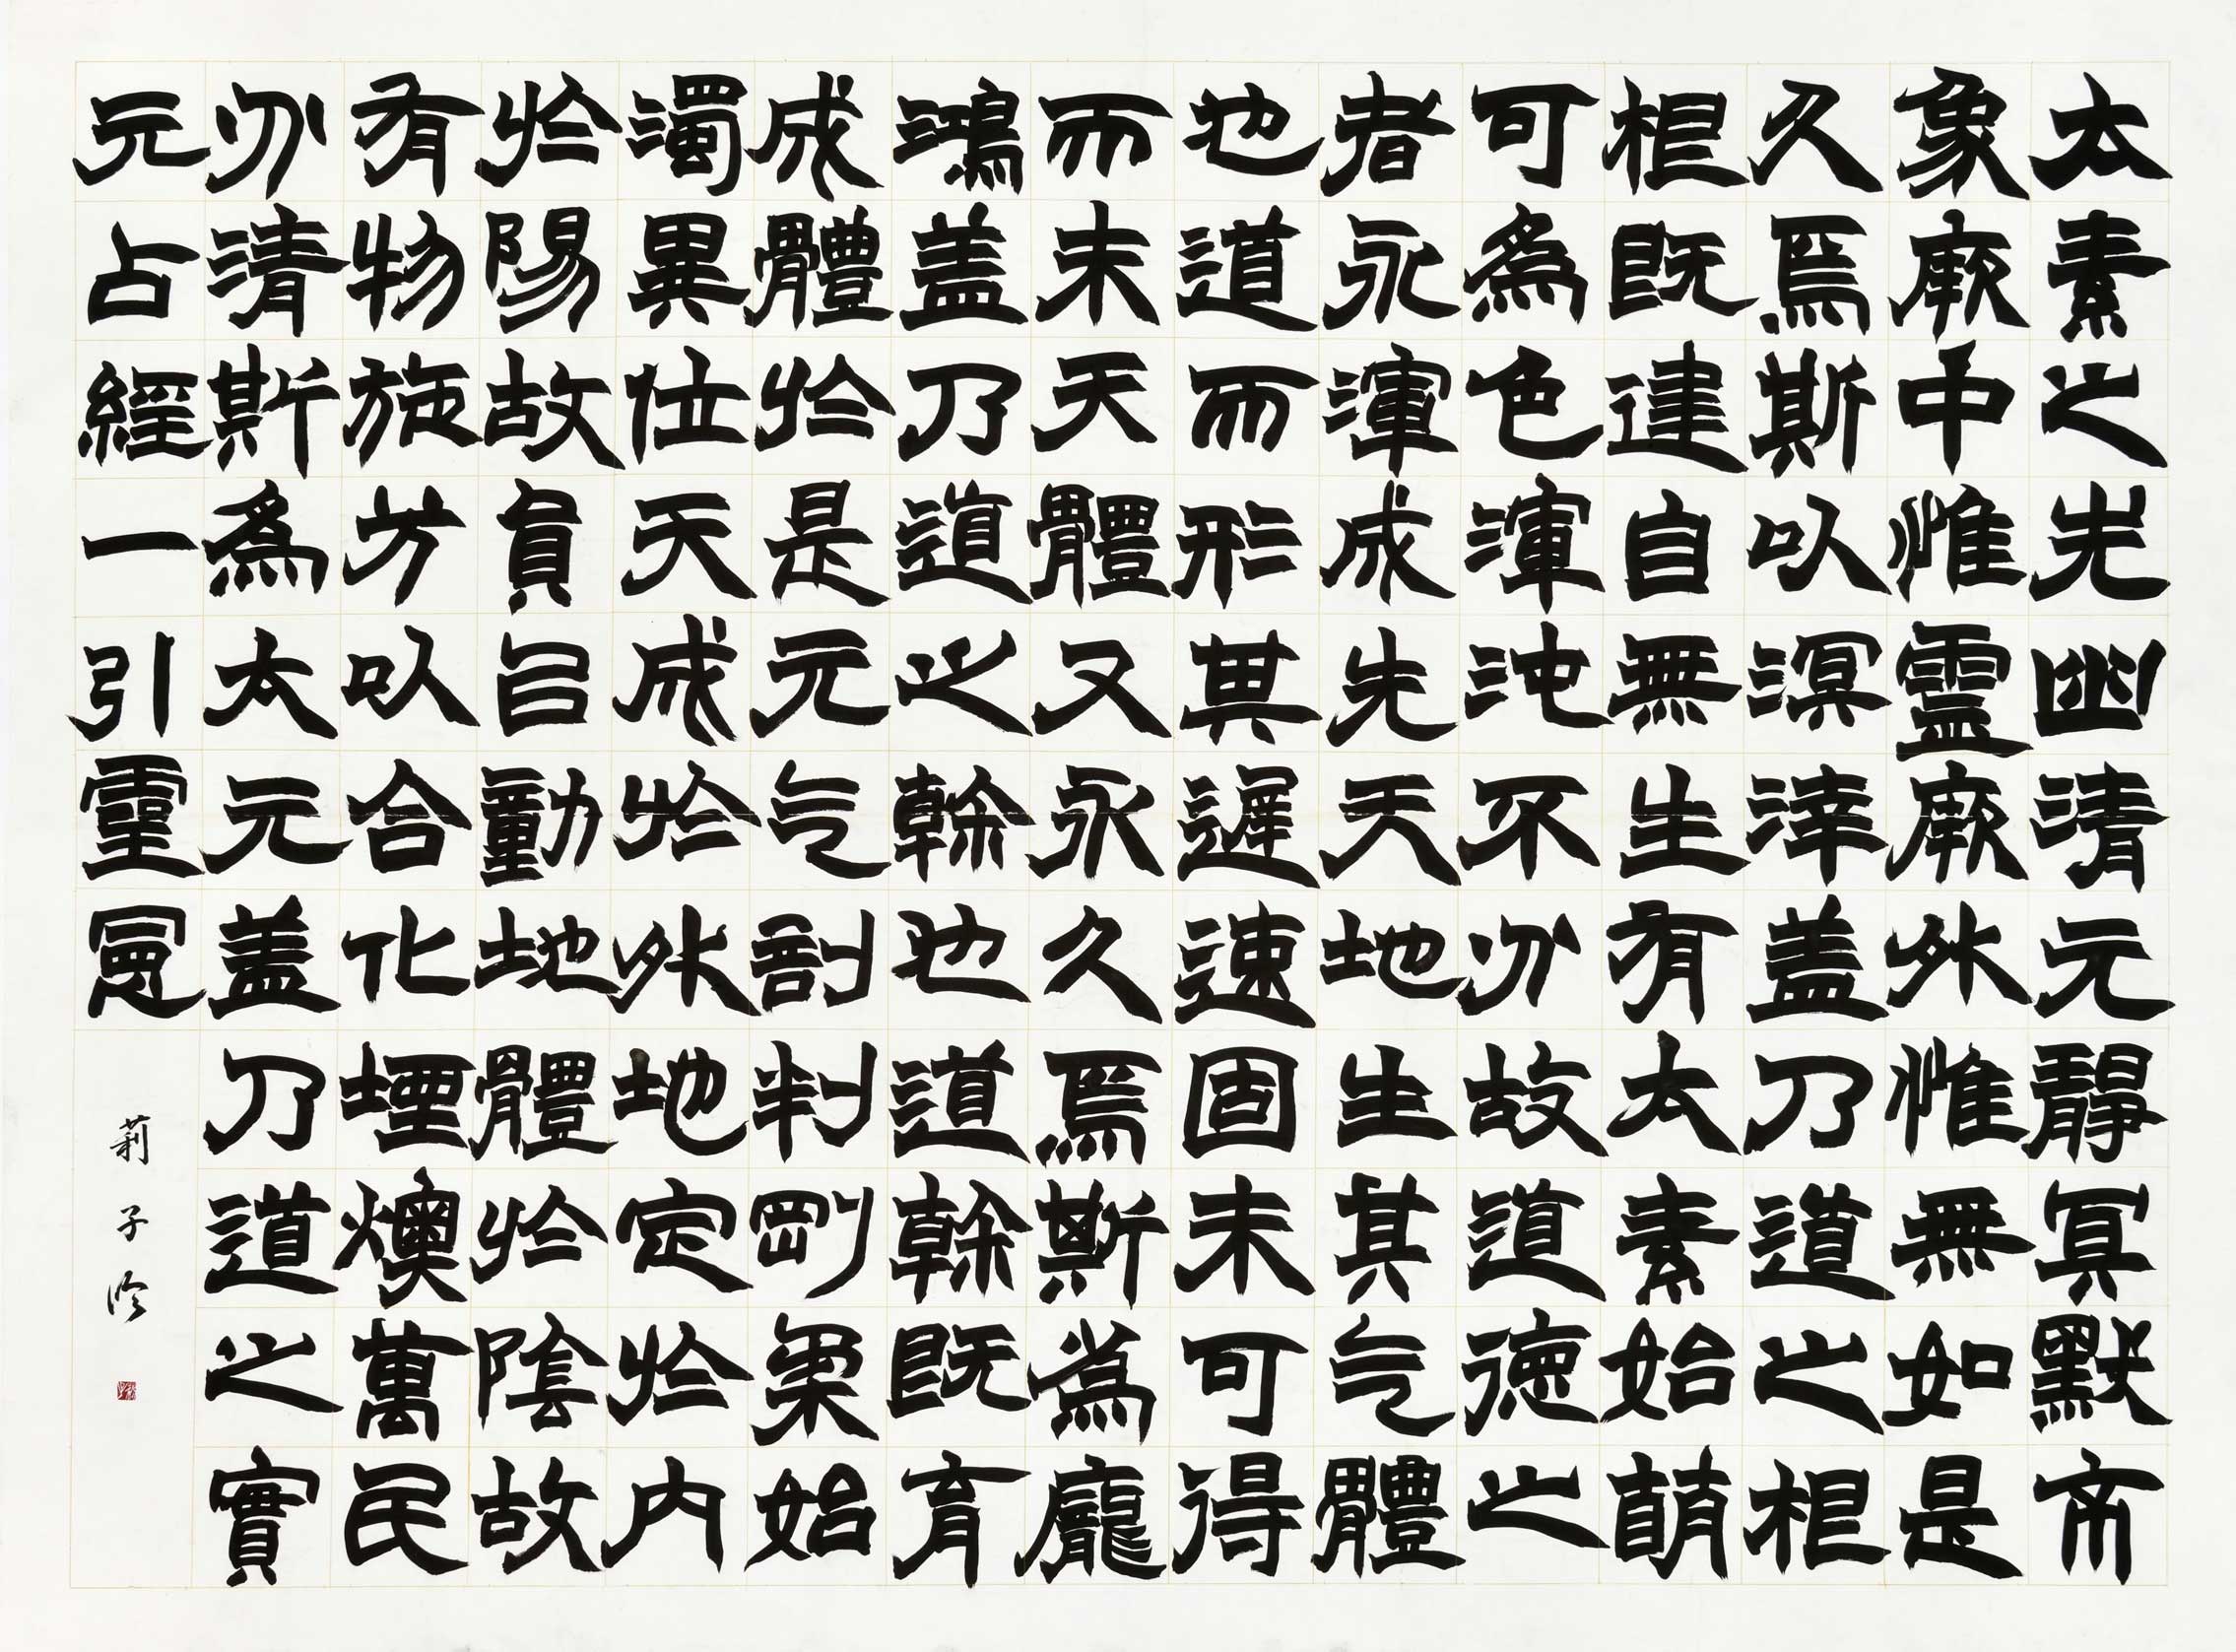 太素之先幽清元靜冥默
象厥中惟靈厥外惟無如是
久焉斯以溟涬盖乃道之根
根既建自無生有太素始萌
可為色渾沌不分故道德之
者永渾成先天地生其气體
也道而形其遲速固未可得
而未天體又永久焉斯為龐
鴻盖乃道之幹也道幹既育
成體於是元气剖判剛柔始
濁異位天成於外地定於內
於陽故員㠯動地體於陰故
有物施方以合化堙燠萬民
分清斯為太元盖乃道之實
元占經一引靈憲
莉子